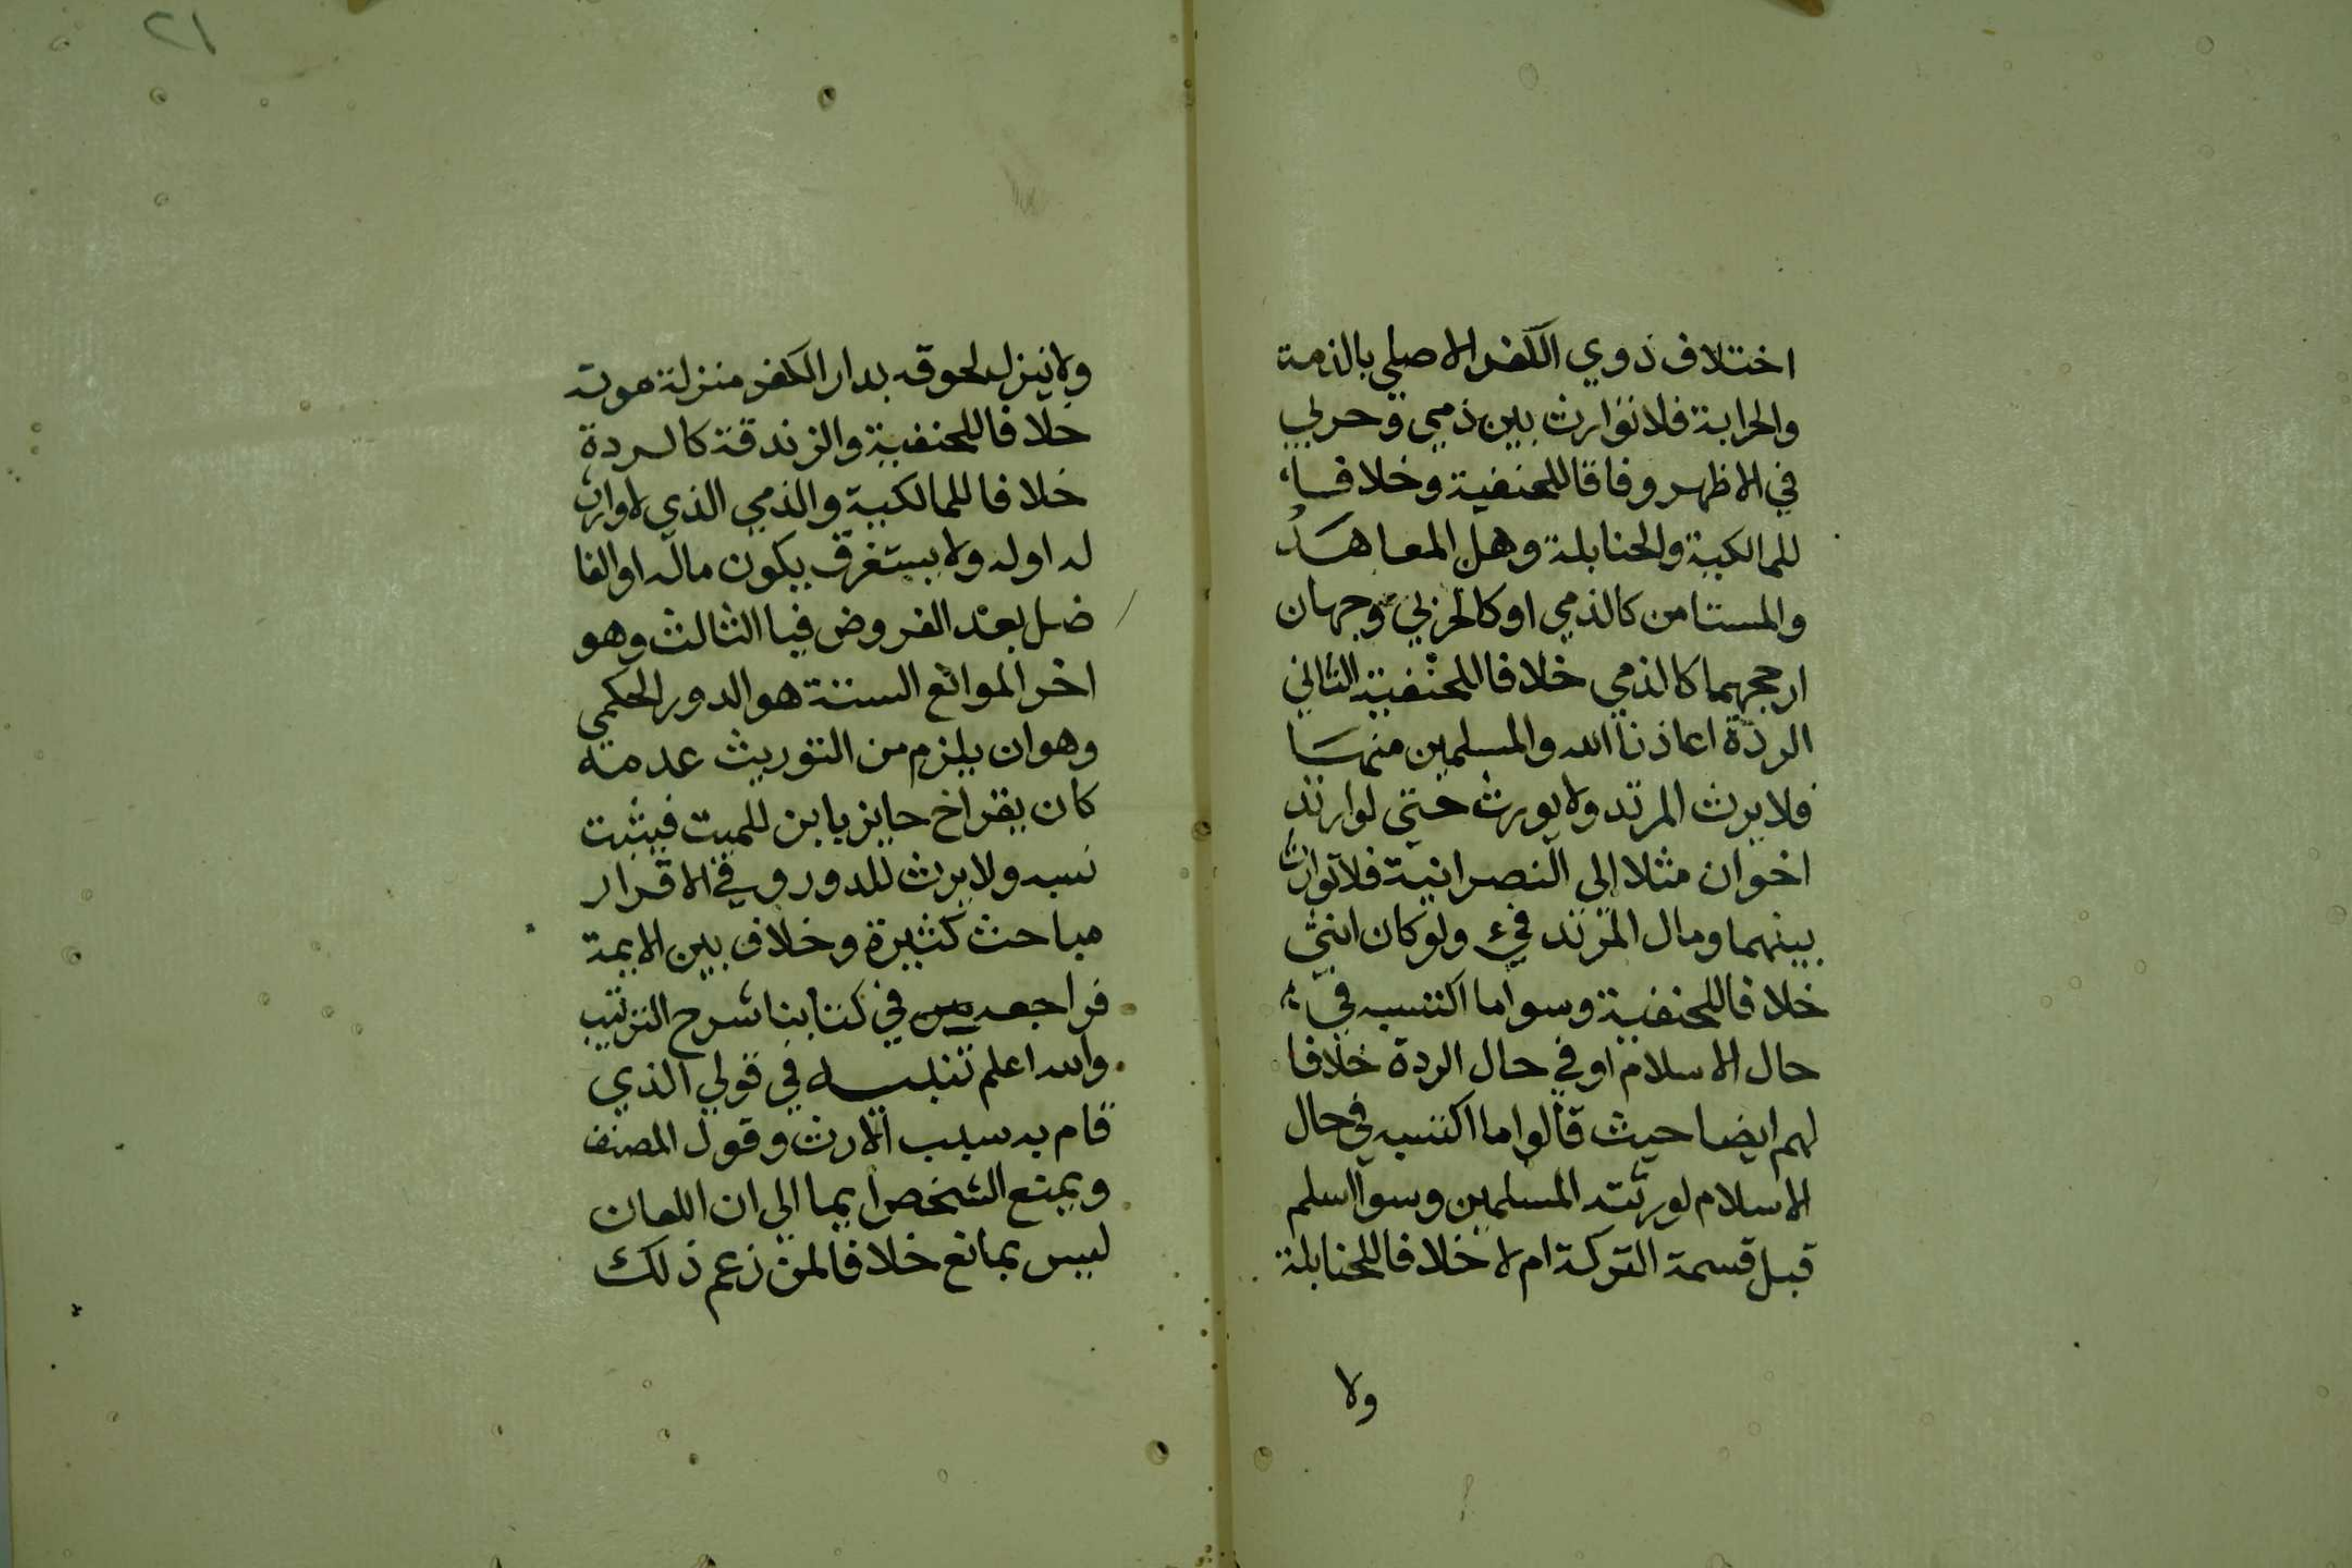 اختلاف ذوي الكفر الاصلي بالذمة
والحرابة فلا توارث بين ذمي وحربي
في الاظهر وفاقا للحنفية وخلافا
للمالكية والحنابلة وهل المعاهد
والمستامن كالذمي او كالحربي وجهان
ارجحهما كالذمي خلافا للحنفية الثاني
الردة اعاذنا الله والمسلمين منها
فلا يرث المرتد ولا يورث حتى لو ارتد
اخوان مثلا الى النصرانية فلا توارث
بينهما ومال المرتد فيء ولو كان انثى
خلافا للحنفية وسوا ما اكتسبه في
حال الاسلام او في حال الردة خلافا
لهم ايضا حيث قالوا ما اكتسبه في حال
الاسلام لورثته المسلمين وسوا اسلم
قبل قسمة التركة ام لا خلافا للحنابلة
ولا
٢١
ولا ينزل لحوقه بدار الكفر منزلة موته
خلافا للحنفية والزندقة كالردة
خلافا للمالكية والذمي الذي لا وارث
له او له ولا يستغرق يكون ماله او الفا
ضل بعد الفروض فيا الثالث وهو
اخر الموانع الستة هو الدور الحكمي
وهو ان يلزم من التوريث عدمه
كان يقر اخ حايز بابن للميت فيثبت
نسبه ولا يرث للدور وفي الاقرار
مباحث كثيرة وخلاف بين الايمة
فراجعه في كتابنا شرح الترتيب
والله اعلم تنبيه في قولي الذي
قام به سبب الارث وقول المصنف
ويمنع الشخص ايما الي ان اللعان
ليس بمانع خلافا لمن زعم ذلك